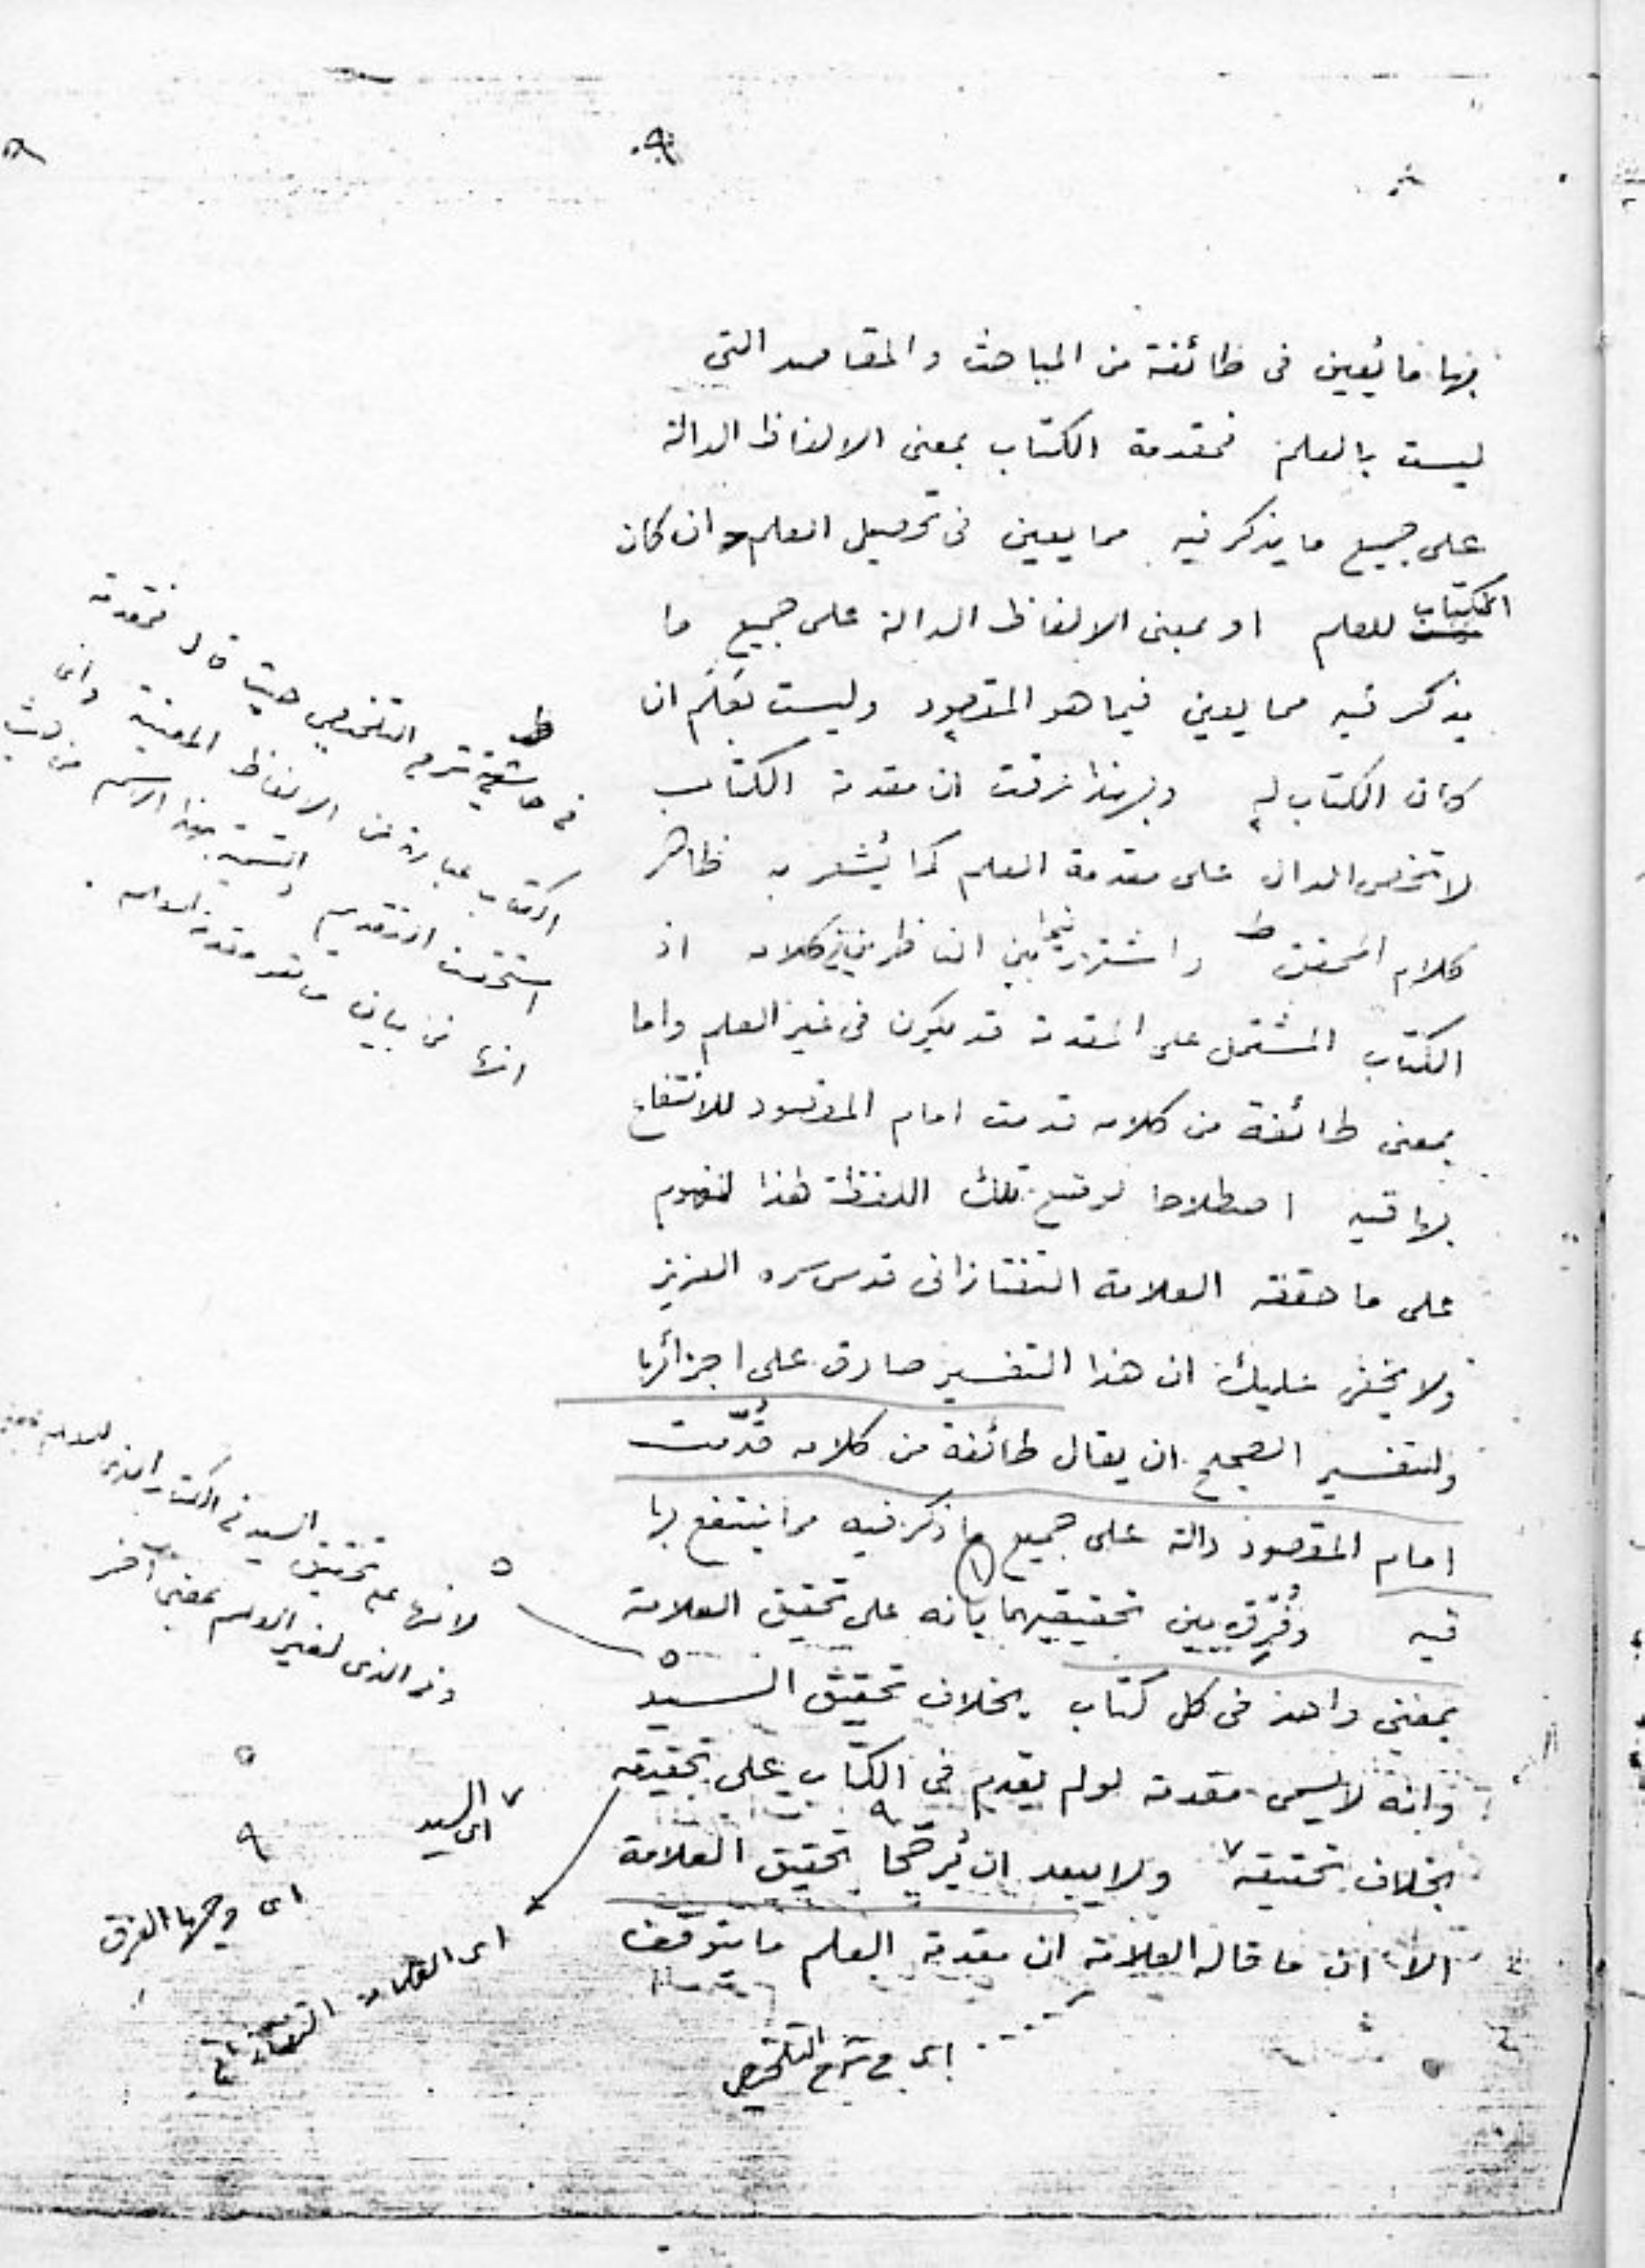 ٩
فيها فائعين فى طائفة من المباحث والمقاصد التى
ليست بالعلم فمقدمة الكتاب بمعنى الالفاظ الدالة
على جميع ما يذكر فيه مما يعين فى تحصيل العلم وان كان
الكتاب للعلم او بمعنى الالفاظ الدالة على جميع ما
يذكر فيه مما يعين فيما هو المقصود وليست بعلم ان
كان الكتاب له وبهذا عرفت ان مقدمة الكتاب
لا تخص الدال على مقدمة العلم كما يُشعر به ظاهر
كلام المحقق ط واشتهر فيما بين الناظرين فى كلامه اذ
الكتاب المشتمل على المقدمة قد يكون فى غير العلم واما
بمعنى طائفة من كلامه قدمت امام المقصود للانتفاع
بها فيه اصطلاحا لوقع تلك اللفظة لهذا المفهوم
على ما حققه العلامة التفتازانى قدس سره العزيز
ولا يخفى عليك ان هذا التفسير صادق على اجزائها
والتفسير الصحيح ان يقال طائفة من كلامه قُدّمت
امام المقصود دالة على جميع ما ذكر فيه مما ينتفع بها
فيه وفُرِّق بين تحقيقيهما بانه على تحقيق العلامة
بمعنى واحد فى كل كتاب بخلاف تحقيق السيد
وانه لا يسمى مقدمة لو لم يقدم فى الكتاب على تحقيقه
بخلاف تحقيقه ٧ ولا يبعد ان يُرجَّحا تحقيق العلامة
الا ان ما قاله العلامة ان مقدمة العلم ما يتوقف
ط
فى حاشية شرح التلخيص حيث قال فمقدمة
الكتاب عبارة عن الالفاظ المعينة
استحقت التقديم والتسمية بهذا الاسم من حيث
انها فى بيان مقدمة العلم
٥
لانها على تحقيق السيد فى الكتاب الذى للعلم
وفى الذى لغير العلم بمعنى آخر
٧ اى السيد
٩
اى وجها الفرق
اى العلامة التفتازانى
اى فى شرح التلخيص